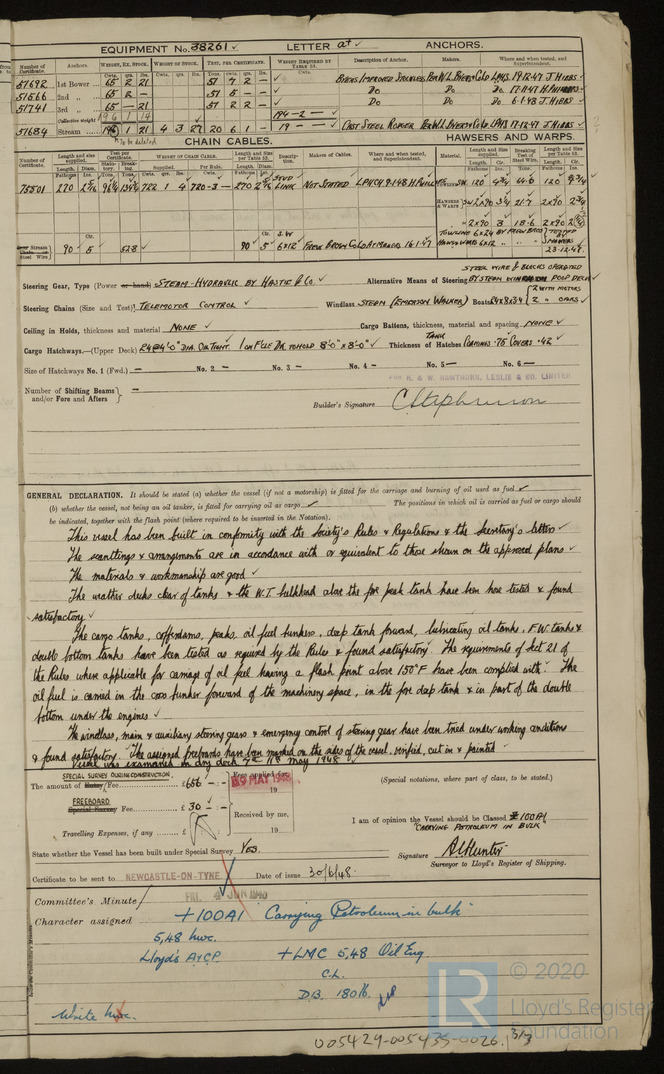 EQUIPMENT No. 38261 ✓ LETTER at ✓ ANCHORS.
Number of Certificate. Anchors. WEIGHT, EX. STOCK. WEIGHT OF STOCK. TEST, PER CERTIFICATE. WEIGHT REQUIRED BY TABLE 53. Description of Anchor. Makers. Where and when tested, and Superintendent.
Cwts. qrs. lbs. Cwts. qrs. lbs. Cwts.
51692 1st Bower 65 2 21 57 7 2 - BYERS IMPROVED STOCKLESS PER W.L. BYERS & CO LPHS. 19.12.47 J. HIBBS
51566 2nd „ 65 2 - 57 5 - - Do Do Do 17.11.47
51741 3rd „ 65 - 21 57 2 2 - Do Do Do 6.1.48 J. HIBBS
Collective weight 196 1 14 194 - 2 -
51684 Stream 1 21 4 3 27 20 6 1 - 19 - CAST STEEL ROGER PER W.L. BYERS & CO LPH 17.12.47 J. HIBBS
To be deleted
CHAIN CABLES. HAWSERS AND WARPS.
Number of Certificate. Length and size supplied. Test per Certificate. WEIGHT OF CHAIN CABLE. Length and Size per Table 53. Description. Makers of Cables. Where and when tested, and Superintendent. Material. Length and Size supplied. Breaking Test of Steel Wire. Length and Size per Table 53.
Fathoms Ins. Statutory. Breaking. Supplied. Per Rule. Fathoms Diam. Length. Cir. Length. Cir.
75501 270 2 722 1 4 720-3- 270 STUD LINK NOT STATED LPHCH 9.1.48 120 120
HAWSERS & WARPS 2x90 21.7 2x90
2x90 3 18.6 2x90
TOWLINE 6x24 BY FREW BROS
Stream Chain Steel Wire 90 5 52.8 90 5 S.W 6x12 FREW BROS & CO LD 16.1.47 HAWSERS & WARPS 6x12 „ „ „
23.12.47
STEEL WIRE & BLOCKS OPERATED
Steering Gear, Type (Power or hand) STEAM-HYDRAULIC BY HASTIE & CO. ✓ Alternative Means of Steering BY STEAM POOP DECK ✓
Steering Chains (Size and Test) TELEMOTOR CONTROL ✓ Windlass STEAM (EMERSON WALKER) Boats 2 WITH MOTORS 2 „ OARS ✓
Ceiling in Holds, thickness and material NONE ✓ Cargo Battens, thickness, material and spacing NONE ✓
Cargo Hatchways.—(Upper Deck) 24 @ 4'-0" DIA. OILTIGHT. 1 ON F'CLE DK TO HOLD 8'-0" x 8'-0" ✓ Thickness of Hatches TANK COAMINGS .75 COVERS .42 ✓
Size of Hatchways No. 1 (Fwd.) — No. 2 — No. 3 — No. 4 — No. 5 — No. 6 —
FOR R. & W. HAWTHORN, LESLIE & CO. LIMITED
Number of Shifting Beams and/or Fore and Afters } —
Builder's Signature C Stephenson
GENERAL DECLARATION. It should be stated (a) whether the vessel (if not a motorship) is fitted for the carriage and burning of oil used as fuel ✓
(b) whether the vessel, not being an oil tanker, is fitted for carrying oil as cargo ✓ The positions in which oil is carried as fuel or cargo should
be indicated, together with the flash point (where required to be inserted in the Notation).
This vessel has been built in conformity with the Society's Rules & Regulations & the Secretary's letters ✓
The scantlings & arrangements are in accordance with or equivalent to those shown on the approved plans ✓
The materials & workmanship are good ✓
The weather decks clear of tanks & the W.T. bulkhead above the fore peak tank have been hose tested & found
satisfactory ✓
The cargo tanks, cofferdams, peaks, oil fuel bunkers, deep tank forward, lubricating oil tanks, F.W. tanks &
double bottom tanks have been tested as required by the Rules & found satisfactory. The requirements of Sect 21 of
the Rules where applicable for carriage of oil fuel having a flash point above 150°F have been complied with. The
oil fuel is carried in the cross bunker forward of the machinery space, in the for deep tank & in part of the double
bottom under the engines ✓
The windlass, main & auxiliary steering gears & emergency control of steering gear have been tried under working conditions
& found satisfactory. The assigned freeboards have been marked on the sides of the vessel, verified, cut in & painted
Vessel was examined in dry dock 7th 11th May 1948 ✓
SPECIAL SURVEY DURING CONSTRUCTION.
The amount of Entry Fee £656 - - Fees applied for, 19 MAY 1948 19
FREEBOARD
Special Survey Fee £ 30 - - Received by me,
Travelling Expenses, if any £ 19
(Special notations, where part of class, to be stated.)
I am of opinion the Vessel should be Classed +100A1
"CARRYING PETROLEUM IN BULK"
State whether the Vessel has been built under Special Survey Yes.
Signature A. Hunter
Surveyor to Lloyd's Register of Shipping.
Certificate to be sent to NEWCASTLE-ON-TYNE Date of issue 30/6/48.
Committee's Minute FRI. 4 JUN 1948
Character assigned +100A1 Carrying Petroleum in bulk
5,48 hwc.
Lloyd's A&CP. +LMC 5,48 Oil Eng.
C.L.
D.B. 180 lb.
Write hwc.
LR © 2020
Lloyd's Register
Foundation
005429-005435-0026 3/3